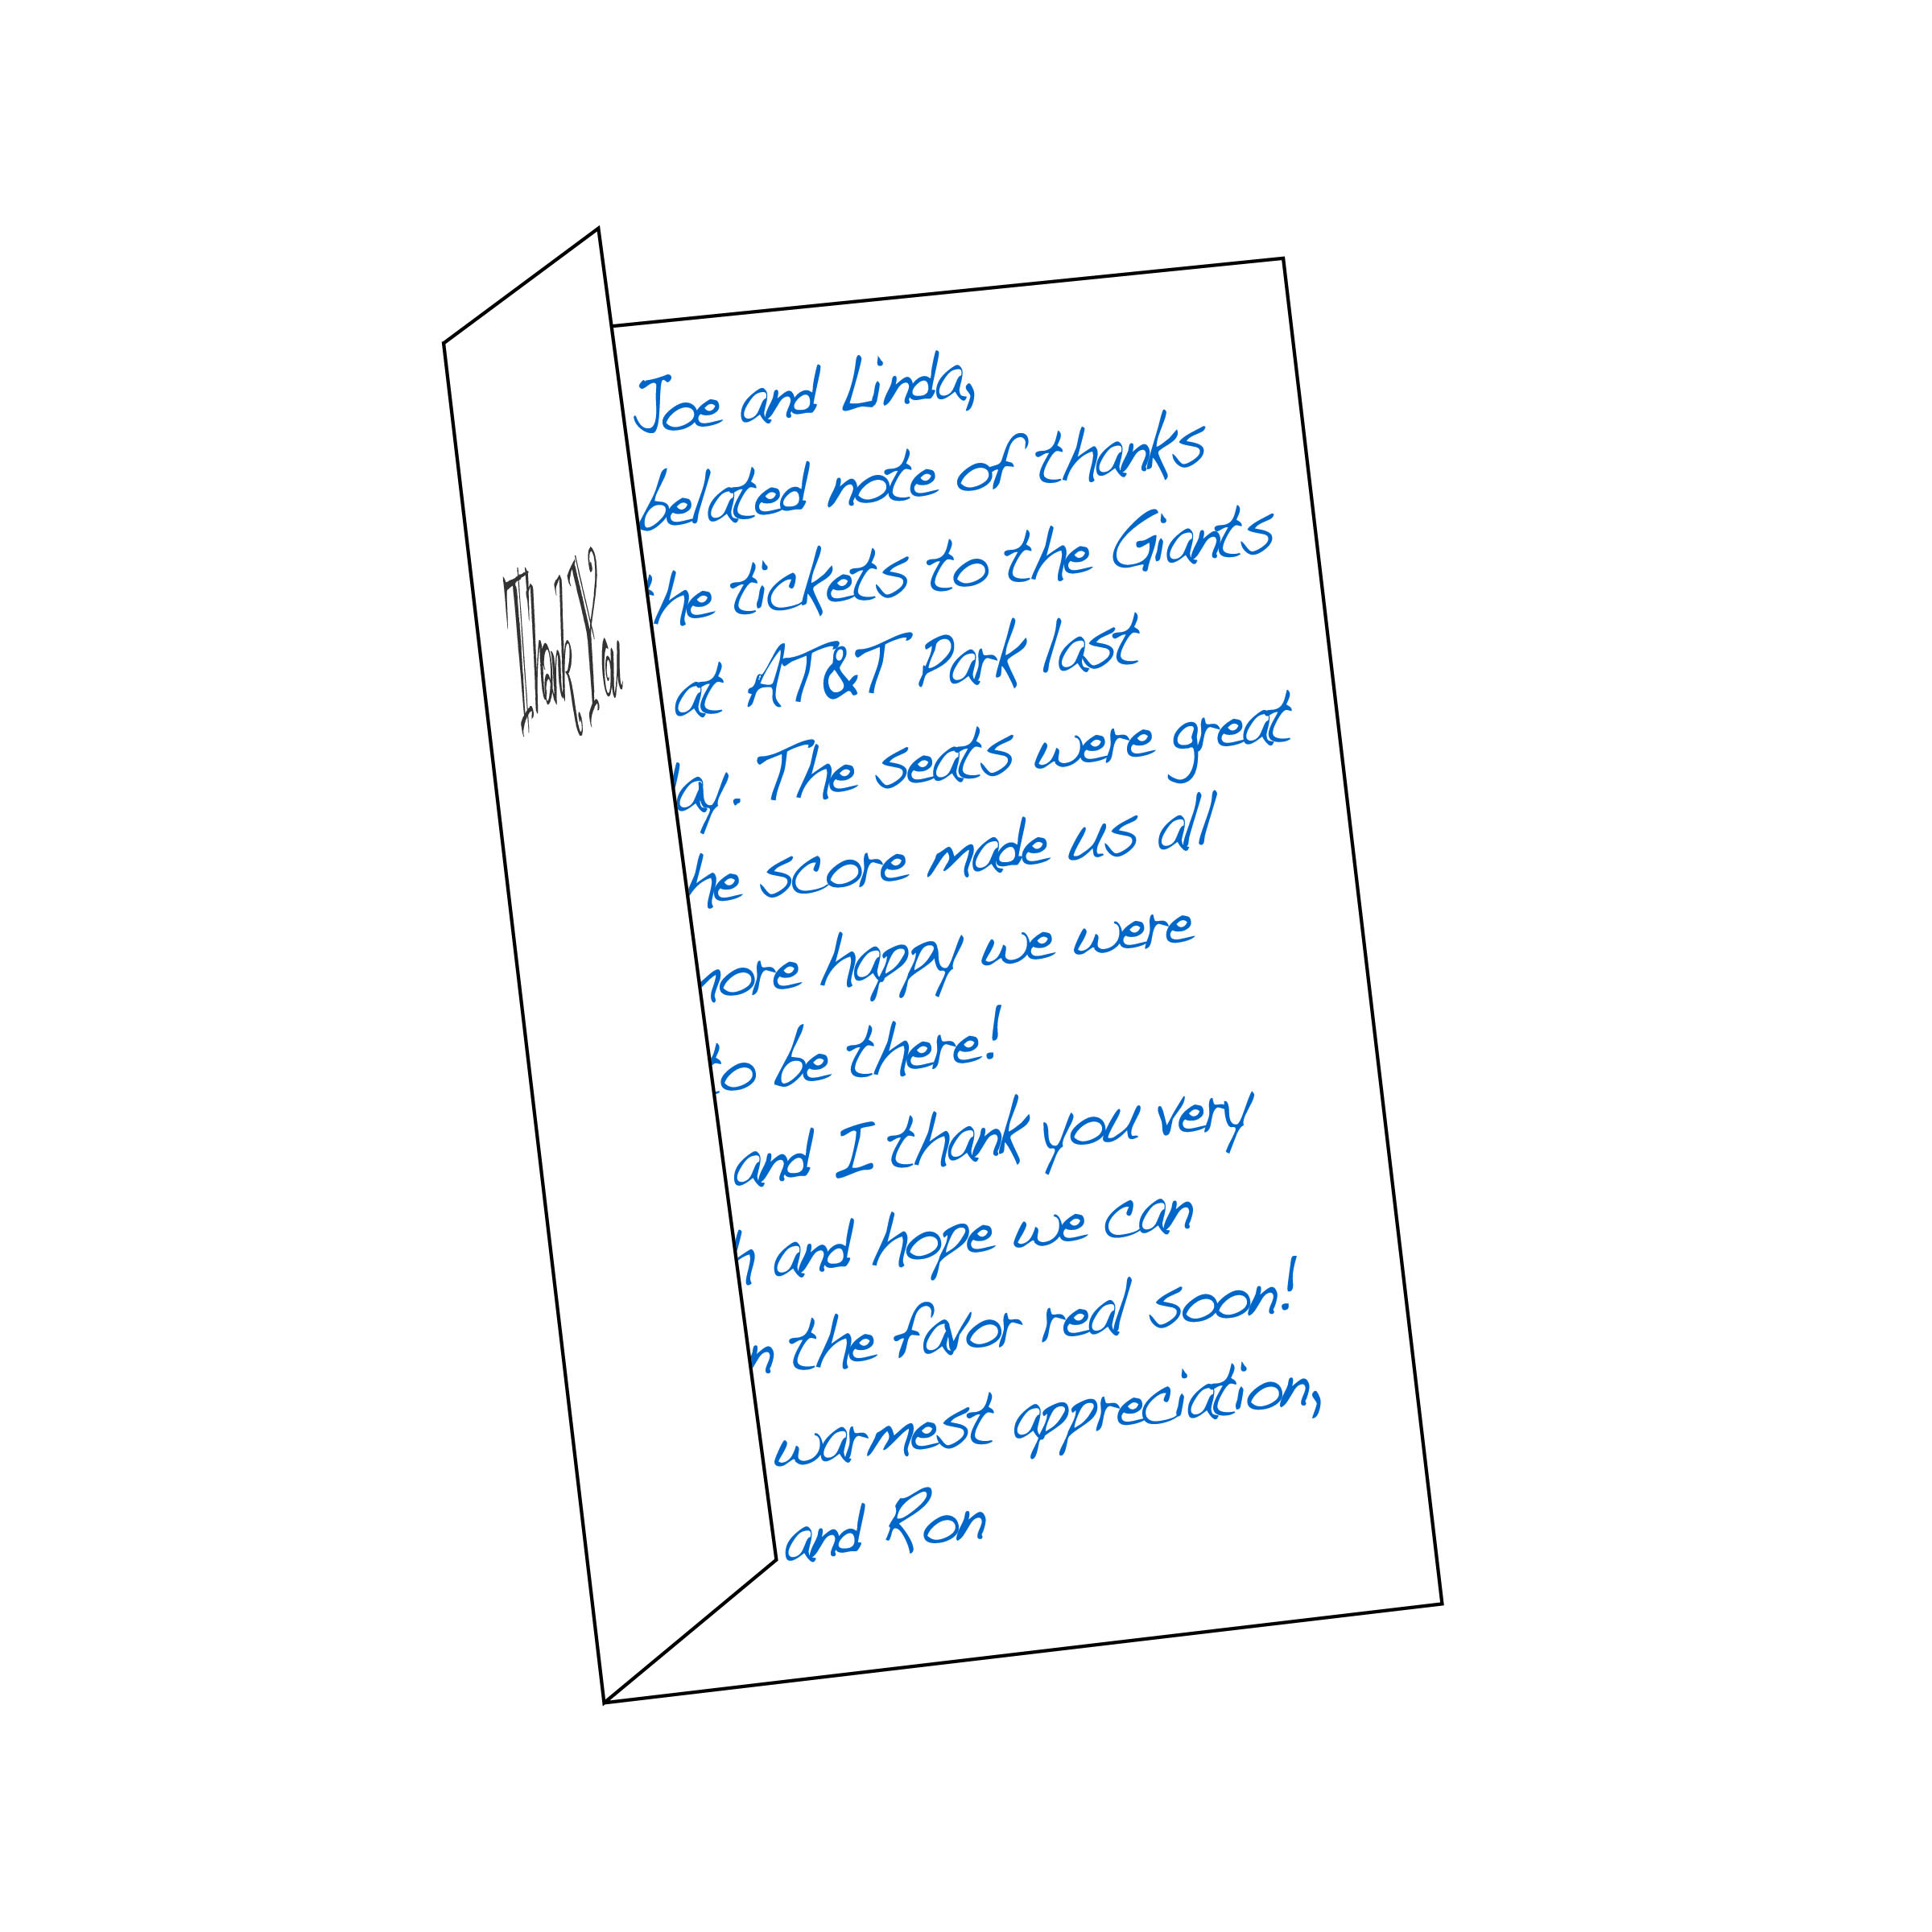 Thank You
Joe and Linda,
belated note of thanks
he tickets to the Giants
at AT&T Park last
ay. The seats were great
he score made us all
more happy we were
to be there!
and I thank you very
h and hope we can
n the favor real soon!
warmest appreciation,
and Ron